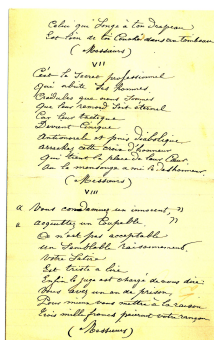 Celui qui Songe à ton drapeau
Est loin de toi Couché dans un tombeau
(Messieurs)
VII
C'est le Secret professionnel
Qui abrite les hommes
Crédules que nous Sommes
Que leur remord soit éternel
Car leur tactique
Devient Cynique
Antimorale et puis diabolique
arrachez cette croix d'honneur
Qui tient la place de leur Cœur
Où le mensonge a mis le deshonneur
(Messieurs)
VIII
a Vous condamnez un innocent, "
a acquittez un Coupable "
Ce n'est pas acceptable
un semblable raisonnement
Votre Satire
Est triste à lire
Enfin le juge est chargé de vous dire
Vous avez un an de prison
Pour mieux vous mettre à la raison
Trois mille francs paieront votre rançon
(Messieurs)